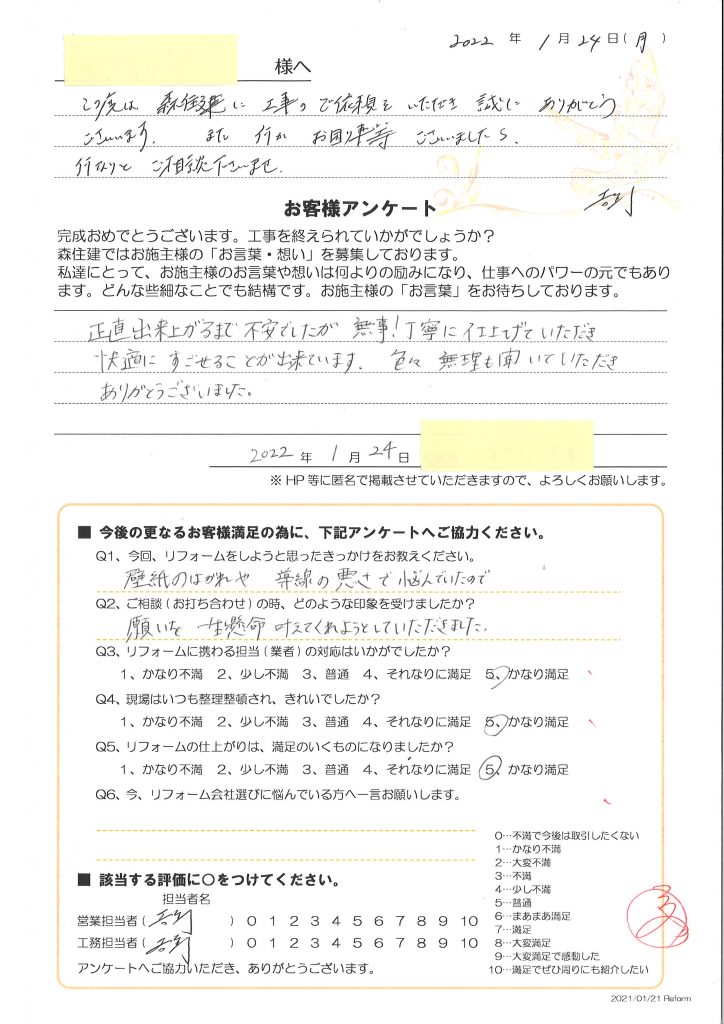 2022 年 1 月 24 日(月)
様へ
この度は 森住建に 工事のご依頼を いただき 誠に ありがとう
ございます. また 何か お困り事等 ございましたら.
何なりと ご相談下さいませ.
お客様アンケート
完成おめでとうございます。工事を終えられていかがでしょうか?
森住建ではお施主様の「お言葉・想い」を募集しております。
私達にとって、お施主様のお言葉や想いは何よりの励みになり、仕事へのパワーの元でもあり
ます。どんな些細なことでも結構です。お施主様の「お言葉」をお待ちしております。
正直出来上がるまで 不安でしたが 無事!丁寧に仕上げていただき
快適に すごせることが出来ています. 色々 無理も聞いていただき
ありがとうございました。
2022 年 1 月 24 日
※HP等に匿名で掲載させていただきますので、よろしくお願いします。
■ 今後の更なるお客様満足の為に、下記アンケートへご協力ください。
Q1、今回、リフォームをしようと思ったきっかけをお教えください。
壁紙のはがれや 導線の悪さで悩んでいたので
Q2、ご相談(お打ち合わせ)の時、どのような印象を受けましたか?
願いを 一生懸命 叶えてくれようとしていただきました.
Q3、リフォームに携わる担当(業者)の対応はいかがでしたか?
1、かなり不満 2、少し不満 3、普通 4、それなりに満足 5、かなり満足
Q4、現場はいつも整理整頓され、きれいでしたか?
1、かなり不満 2、少し不満 3、普通 4、それなりに満足 5、かなり満足
Q5、リフォームの仕上がりは、満足のいくものになりましたか?
1、かなり不満 2、少し不満 3、普通 4、それなりに満足 5、かなり満足
Q6、今、リフォーム会社選びに悩んでいる方へ一言お願いします。
0…不満で今後は取引したくない
1…かなり不満
2…大変不満
3…不満
4…少し不満
5…普通
6…まあまあ満足
7…満足
8…大変満足
9…大変満足で感動した
10…満足でぜひ周りにも紹介したい
■ 該当する評価に○をつけてください。
担当者名
営業担当者( ) 0 1 2 3 4 5 6 7 8 9 10
工務担当者( ) 0 1 2 3 4 5 6 7 8 9 10
アンケートへご協力いただき、ありがとうございます。
2021/01/21 Reform